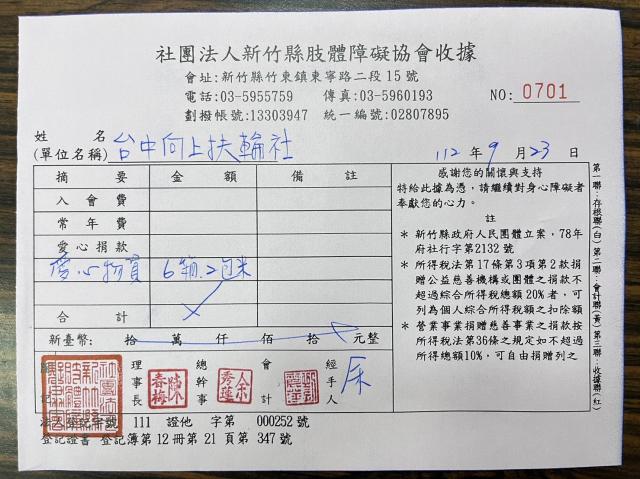 社團法人新竹縣肢體障礙協會收據
會址:新竹縣竹東鎮東寧路二段15號
電話:03-5955759 傳真:03-5960193
劃撥帳號:13303947 統一編號:02807895
NO: 0701
姓名
(單位名稱) 台中向上扶輪社
112年9月23日
摘要 金額 備註
入會費
常年費
愛心捐款
愛心物資 6箱.2包米
合計
新臺幣: 拾萬仟佰拾元整
感謝您的關懷與支持
特給此據為憑,請繼續對身心障礙者
奉獻您的心力。
註
* 新竹縣政府人民團體立案,78年
府社行字第2132號
* 所得稅法第17條第3項第2款捐
贈公益慈善機構或團體之捐款不
超過綜合所得稅總額20%者,可
列為個人綜合所得稅之扣除額
* 營業事業捐贈慈善事業之捐款按
所得稅法第36條之規定如不超過
所得總額10%,可自由捐贈列之
第一聯:存根聯(白) 第二聯:會計聯(黃) 第三聯:收據聯(紅)
理事長 陳春梅
總幹事 余秀蓮
會計
經手人
登記字號 111 證他 字第 000252 號
登記證書 登記簿第12冊第21頁第347號